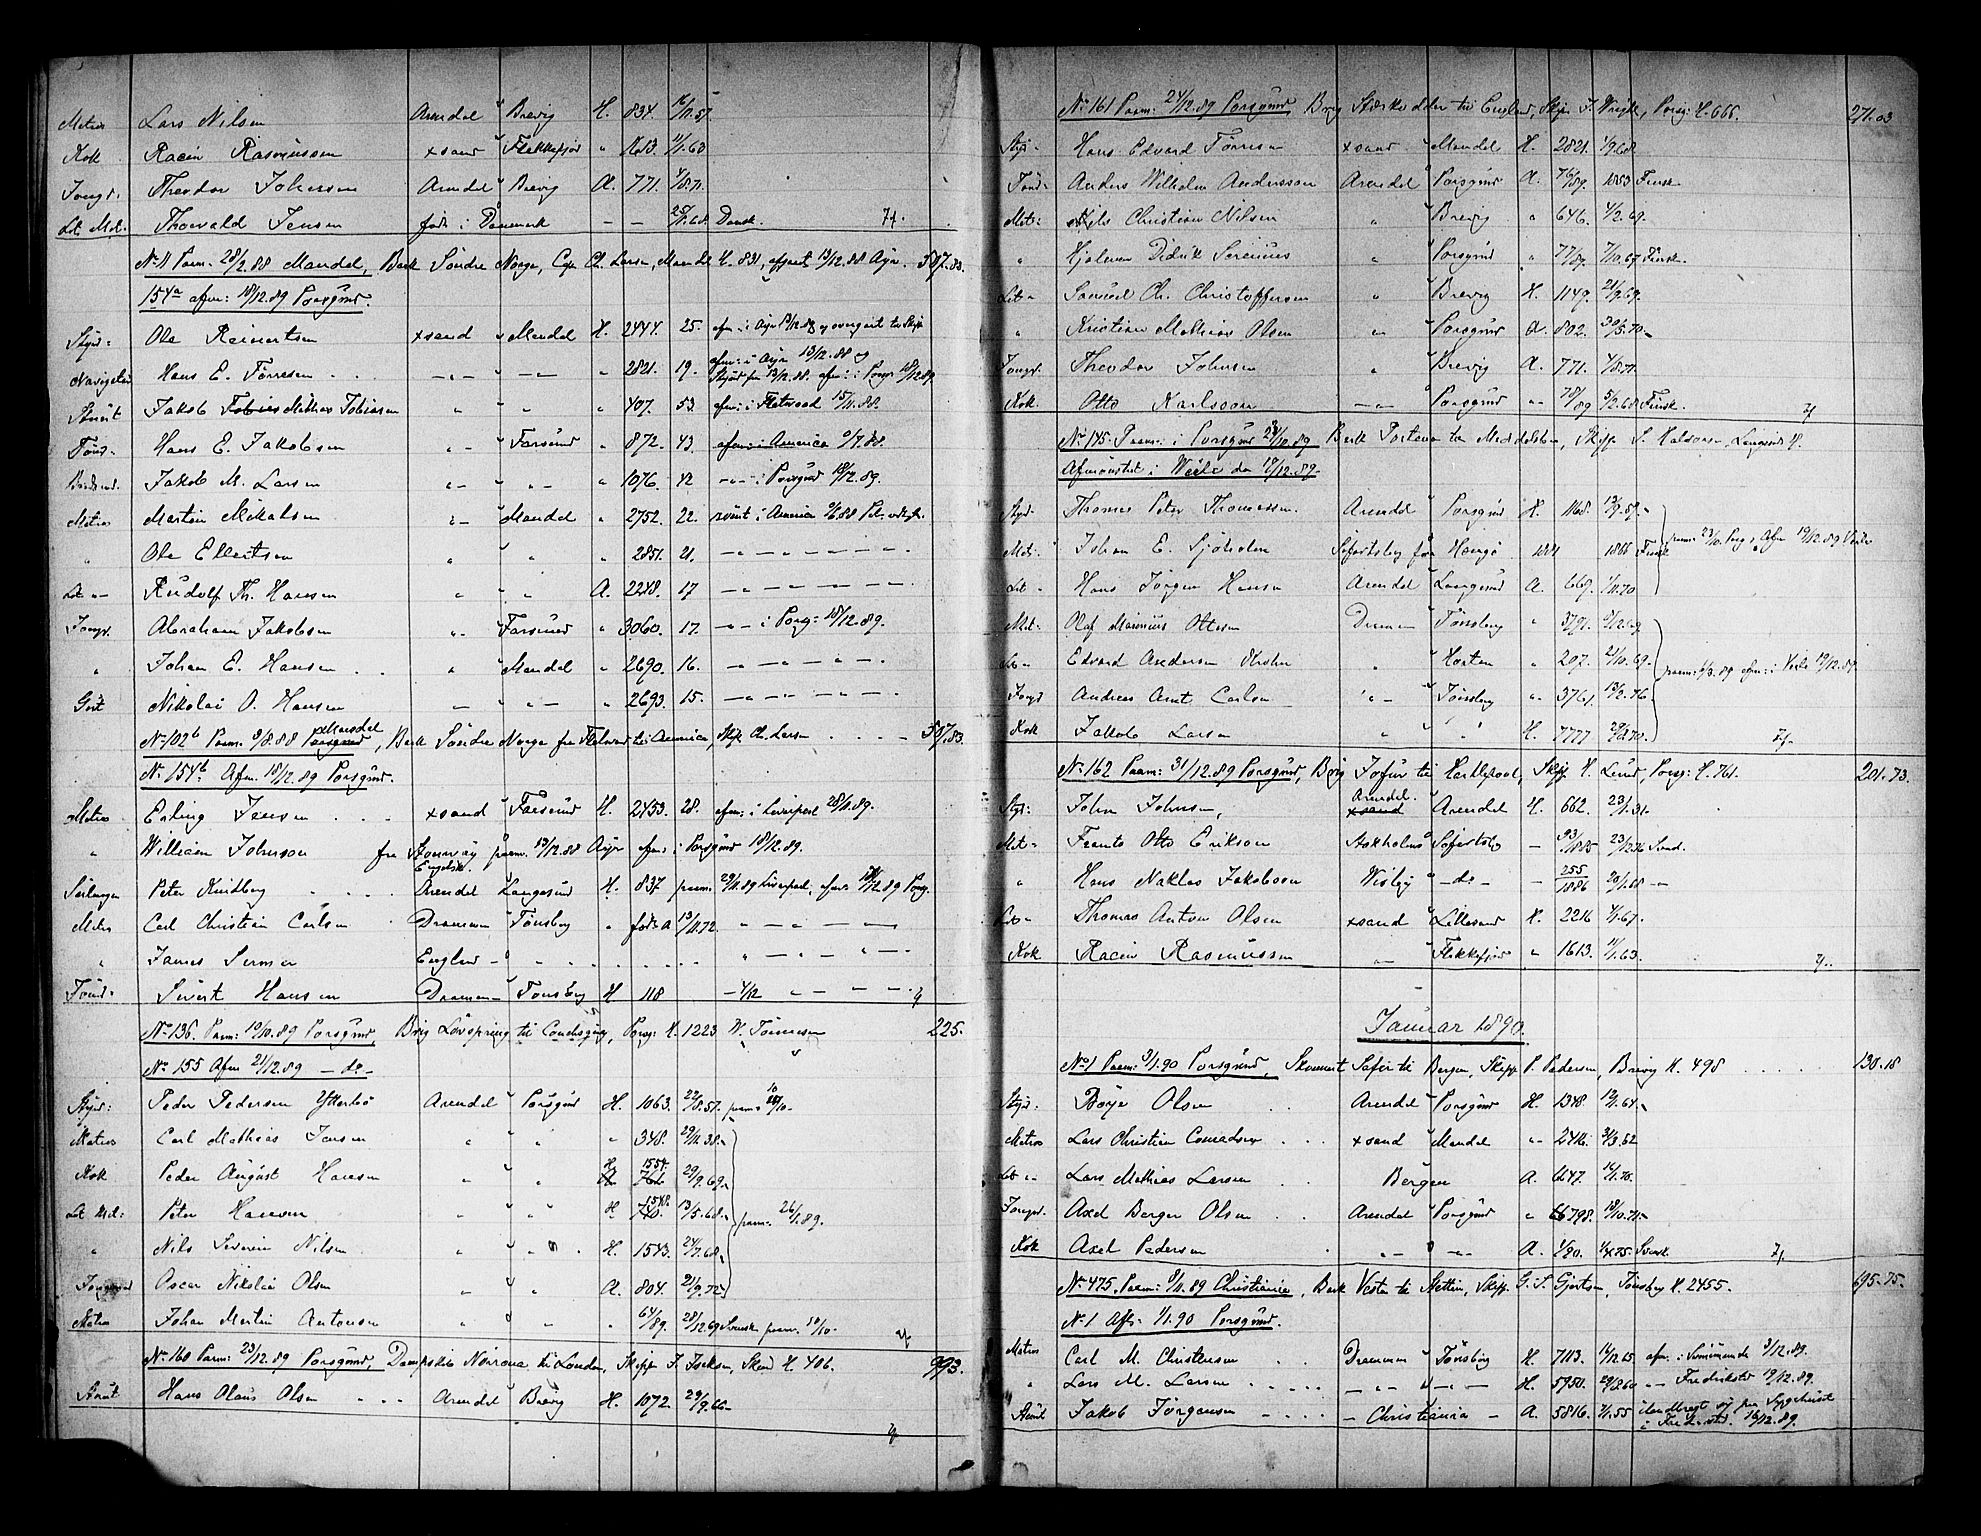 Matros Lars Nilsen Arendal " Brevig H. 834. 16/11.57.
Kok Racin Rasmussen xsand " Flekkefjor " 1613. 11/1.63
Jongr. Theodor Johnsen Arendal " Brevig A. 771. 4/8.71.
Let. Mat. Thorvald Jensen født i Danmark — — 25/11.68. Dansk. 7/-
No 11 Paam: 28/2.88 Mandal, Bark Søndre Norge, Cpt Ch. Larsen, Mandal H. 831, afgaaet 13/12.88 Ayr. 507.83.
154a afm: 18/12.89 Porsgrund.
Styrd: Ole Reinertsen xsand " Mandal H. 2444. 25. afm: i Ayr 13/12.88 og overgaaet til Skipp
Hans E. Tørresen . . —„— —„— " 2821. 19. afm: i Ayr 13/12.88 og
Styrd fra 13/12.88. afm: i Pors 18/12.89.
Stuürt Jakob Tobias Mathias Tobiasen " " " 407. 53. afm: i Fleetwood 15/11.88.
Tømd- Hans E. Jakobsen " - Farsund " 872. 43. afm: i America 9/7.88.
Jakob M. Larsen "-- "-- " 1076. 42 -„- i Porsgrund 18/12.89.
Matros Martin Mikalsen "- Mandal " 2752. 22. rømt i America 9/8.88
" Ole Ellertsen " " 2851. 21. — — — — — —
Let "- Rudolf Th. Hansen " " A. 2248. 17 — — — — — —
Jongr. Abraham Jakobsen ". Farsund " 3060. 17. -„- i Pors: 18/12.89.
" Johan E. Hansen . . " Mandal " 2690. 16. — — — —
Gut Nikolai O. Hansen — "— " 2693. 15. — — — —
No 102b Paam: 9/8.88 Porsgrund Mandal, Bark Søndre Norge fra Fleetwood til America, Skip. Ch. Larsen . . . . 507.83.
No 154b Afm. 18/12.89 Porsgrund.
Matros Erling Jensen . . . xsand " Farsund H. 2453. 28. afm: i Liverpool 28/11.89.
" William Johnson fra paam. 13/12.88 Ayr afm: i Porsgrund 18/12.89.
Engelsk.
Peter Kindberg . . . . Arendal " Langesund H. 837. paam: 29/11.89 Liverpool, afm: 18/12.89 Porsg.
Matros Carl Christian Carlsen Drammen " Tønsberg " født A 13/11.72. " — " — —
" James England - " . . . . . . " — — " —
Tømd- Sivert Hansen Drammen - Tønsberg H 118 — 4/12 " — — 7/
No 136. Paam: 19/10.89 Porsgrund, Brig Løvspring til, Porsg: H. 1223 W. Tønnesen 225.
No 155 Afm 21/12.89 — do —
Styrd: Peder Pedersen Ytterbø Arendal " Porsgrund H. 1063. 22/8.57. paam: 19/10-
Matros Carl Mathias Jensen " " " 348. 29/11.38.
Kok Peder August Hansen " " H 1554. 766 29/9.69.
Let Mat: Peter Hansen " " H 1548. 740. 13/5.68. paam: 26/1.89.
" Nils Severin Nilsen " " H. 1543. 24/7.68.
Jongmand Oscar Nikolai Olsen " " A. 804. 21/9.72.
Matros Johan Martin Antonsen " " " 64/89. 28/12.69 Svensk paam. 19/10- 7/
No 160 Paam: 23/12.89 Porsgrund, Dampskib Norrøna til London, Skipp J. Isaksen, Skien H. 406. 993.
Stuürt Hans Olaus Olsen . . . Arendal " Brevig H. 1072. 29/9.66- 7/
No 161 Paam: 24/12.89 Porsgrund, Brig til England, Skip. J. Wright, Porsg: H. 666. 271.03
Styrd- Hans Edvard Tørresen xsand " Mandal H. 2821. 1/9.68.
Tømd- Anders Wilhelm Andersson Arendal " Porsgrund A. 76/89. 1853 Finsk.
Mat: Nils Christian Nilsen " " Brevig " 646. 4/2.69.
" Hjalmar Didrik Serenius " " Porsgrund " 77/89. 7/10.67 Finsk.
Let- Samuel Ch. Christoffersen " " Brevig H. 1149. 21/9.69.
" Kristian Mathias Olsen " " Porsgrund A. 802. 30/5.70.
Jongr. Theodor Johnsen " Brevig A. 771. 4/8.71.
Kok. Otto Karlsson —„— Porsgrund " 78/89 5/2.68 Finsk. 7/
No 145. Paam: i Porsgrund 23/10.89 Bark til Middelsbro, Skipp. S. Halvorsen, Langesund H.
Afmønstret i Wadsø den 19/12.89.
Styrd- Thomas Peter Thomassen. Arendal " Porsgrund H. 1168. 13/9.57.
Mat: Johan E. Sjøholm Søfartsbog fra Hangø 1881 1866 Finsk paam: 23/10. Porsg, Afm 19/12.89
Let- Hans Jørgen Hansen Arendal " Langesund A. 669. 1/11.70
Mat: Olaf Marinius Ottesen Drammen " Tønsberg " 3791. 9/12.69.
Let- Edvard Andersen " Horten " 207. 4/10.69. paam: 1/3.89 afm: i 19/12.89.
Jongr Andreas Amt Carlsen "- Tønsberg " 3761. 13/2.76.
Kok Jakob Larsen " " H. 7777 29/8.70. 7/-
No 162 Paam: 31/12.89 Porsgrund, Brig til Hartlepool, Skipp. H. Lund, Porsg: H. 761. 201.73.
Styr: John Johnsen, Arendal. xsand " Arendal H. 662. 23/1.31.
Mat- Frants Otto Erikson Stokholms Søfartsbog - 93/1885 23/12.76 Svensk.
" Hans Niklas Jakobson Wisby — do — - 255/1886 20/1.68 -„-
Let- Thomas Anton Olsen xsand " Lillesand H. 2216 4/1.67.
Kok Racin Rasmussen —„— " Flekkefjor " 1613. 11/1.63. 7/.
Januar 1890.
No 1 Paam: 3/1.90 Porsgrund, Skonnert til Bergen, Skipp P. Pedersen, Brevig H. 498 . . . . . 130.18
Styrd. Børje Olsen . . Arendal " Porsgrund H. 1348. 12/1.64.
Matros Lars Christian Conradsen . . . xsand " Mandal " 2416. 31/3.62
Let "- Lars Mathias Larsen . . Bergen A. 6647. 16/1.70.
Jongr. Axel Berger Olsen . . . Arendal " Porsgrund " 66798. 18/10.71.
Kok Axel Pedersen . "- " "- A. 1/90. 1/4.75. Svensk 7/
No 475. Paam: 9/11.89 Christiania, Bark Vesta til Stettin, Skipp. G. S. Gjertsen, Tønsberg H. 2455. 695.75.
No 1 Afm: 1/1.90 Porsgrund.
Matros Carl M. Christensen . . Drammen " Tønsberg H. 7113. 14/12.65 afm: i Swinemunde 9/12.89.
" Lars M. Larsen . . . . . — " " — " — H. 5950. 20/8.60 -„- Fredrikstad 19/12.89.
Stuürt Jakob Jørgensen . . . . — Christiania — A. 5816. 7/1.55 ilandbragt syg paa Sygehuset
i Fredrikstad. 16/12.89.